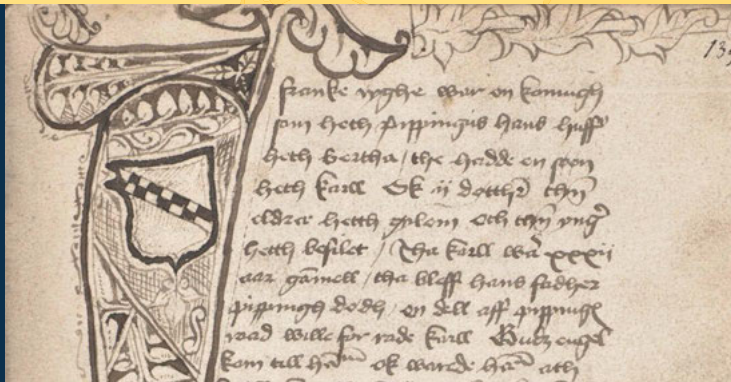 139
franke righe war en konungh
som heth pippingus hans husf
heth bertha / the hadde en søn
heth karll Ok ij dotth thn
eldrer hetth gylem och thn yng
hetth besilet / Tha karll wa xxxij
aar gamell / tha bleff hans fadher
pippingh dodh / en dell aff pipping
raad wille for rade karll Gudz engel
kom till ha ok warede ha ath